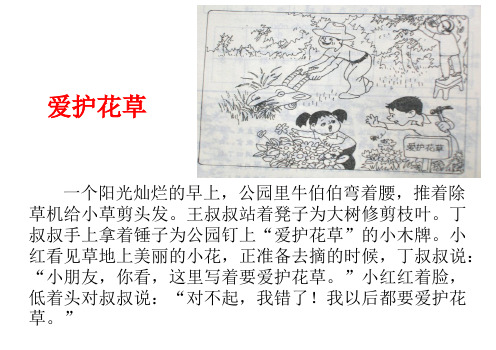 爱护花草
爱护花草
一个阳光灿烂的早上，公园里牛伯伯弯着腰，推着除
草机给小草剪头发。王叔叔站着凳子为大树修剪枝叶。丁
叔叔手上拿着锤子为公园钉上“爱护花草”的小木牌。小
红看见草地上美丽的小花，正准备去摘的时候，丁叔叔说：
“小朋友，你看，这里写着要爱护花草。”小红红着脸，
低着头对叔叔说：“对不起，我错了！我以后都要爱护花
草。”